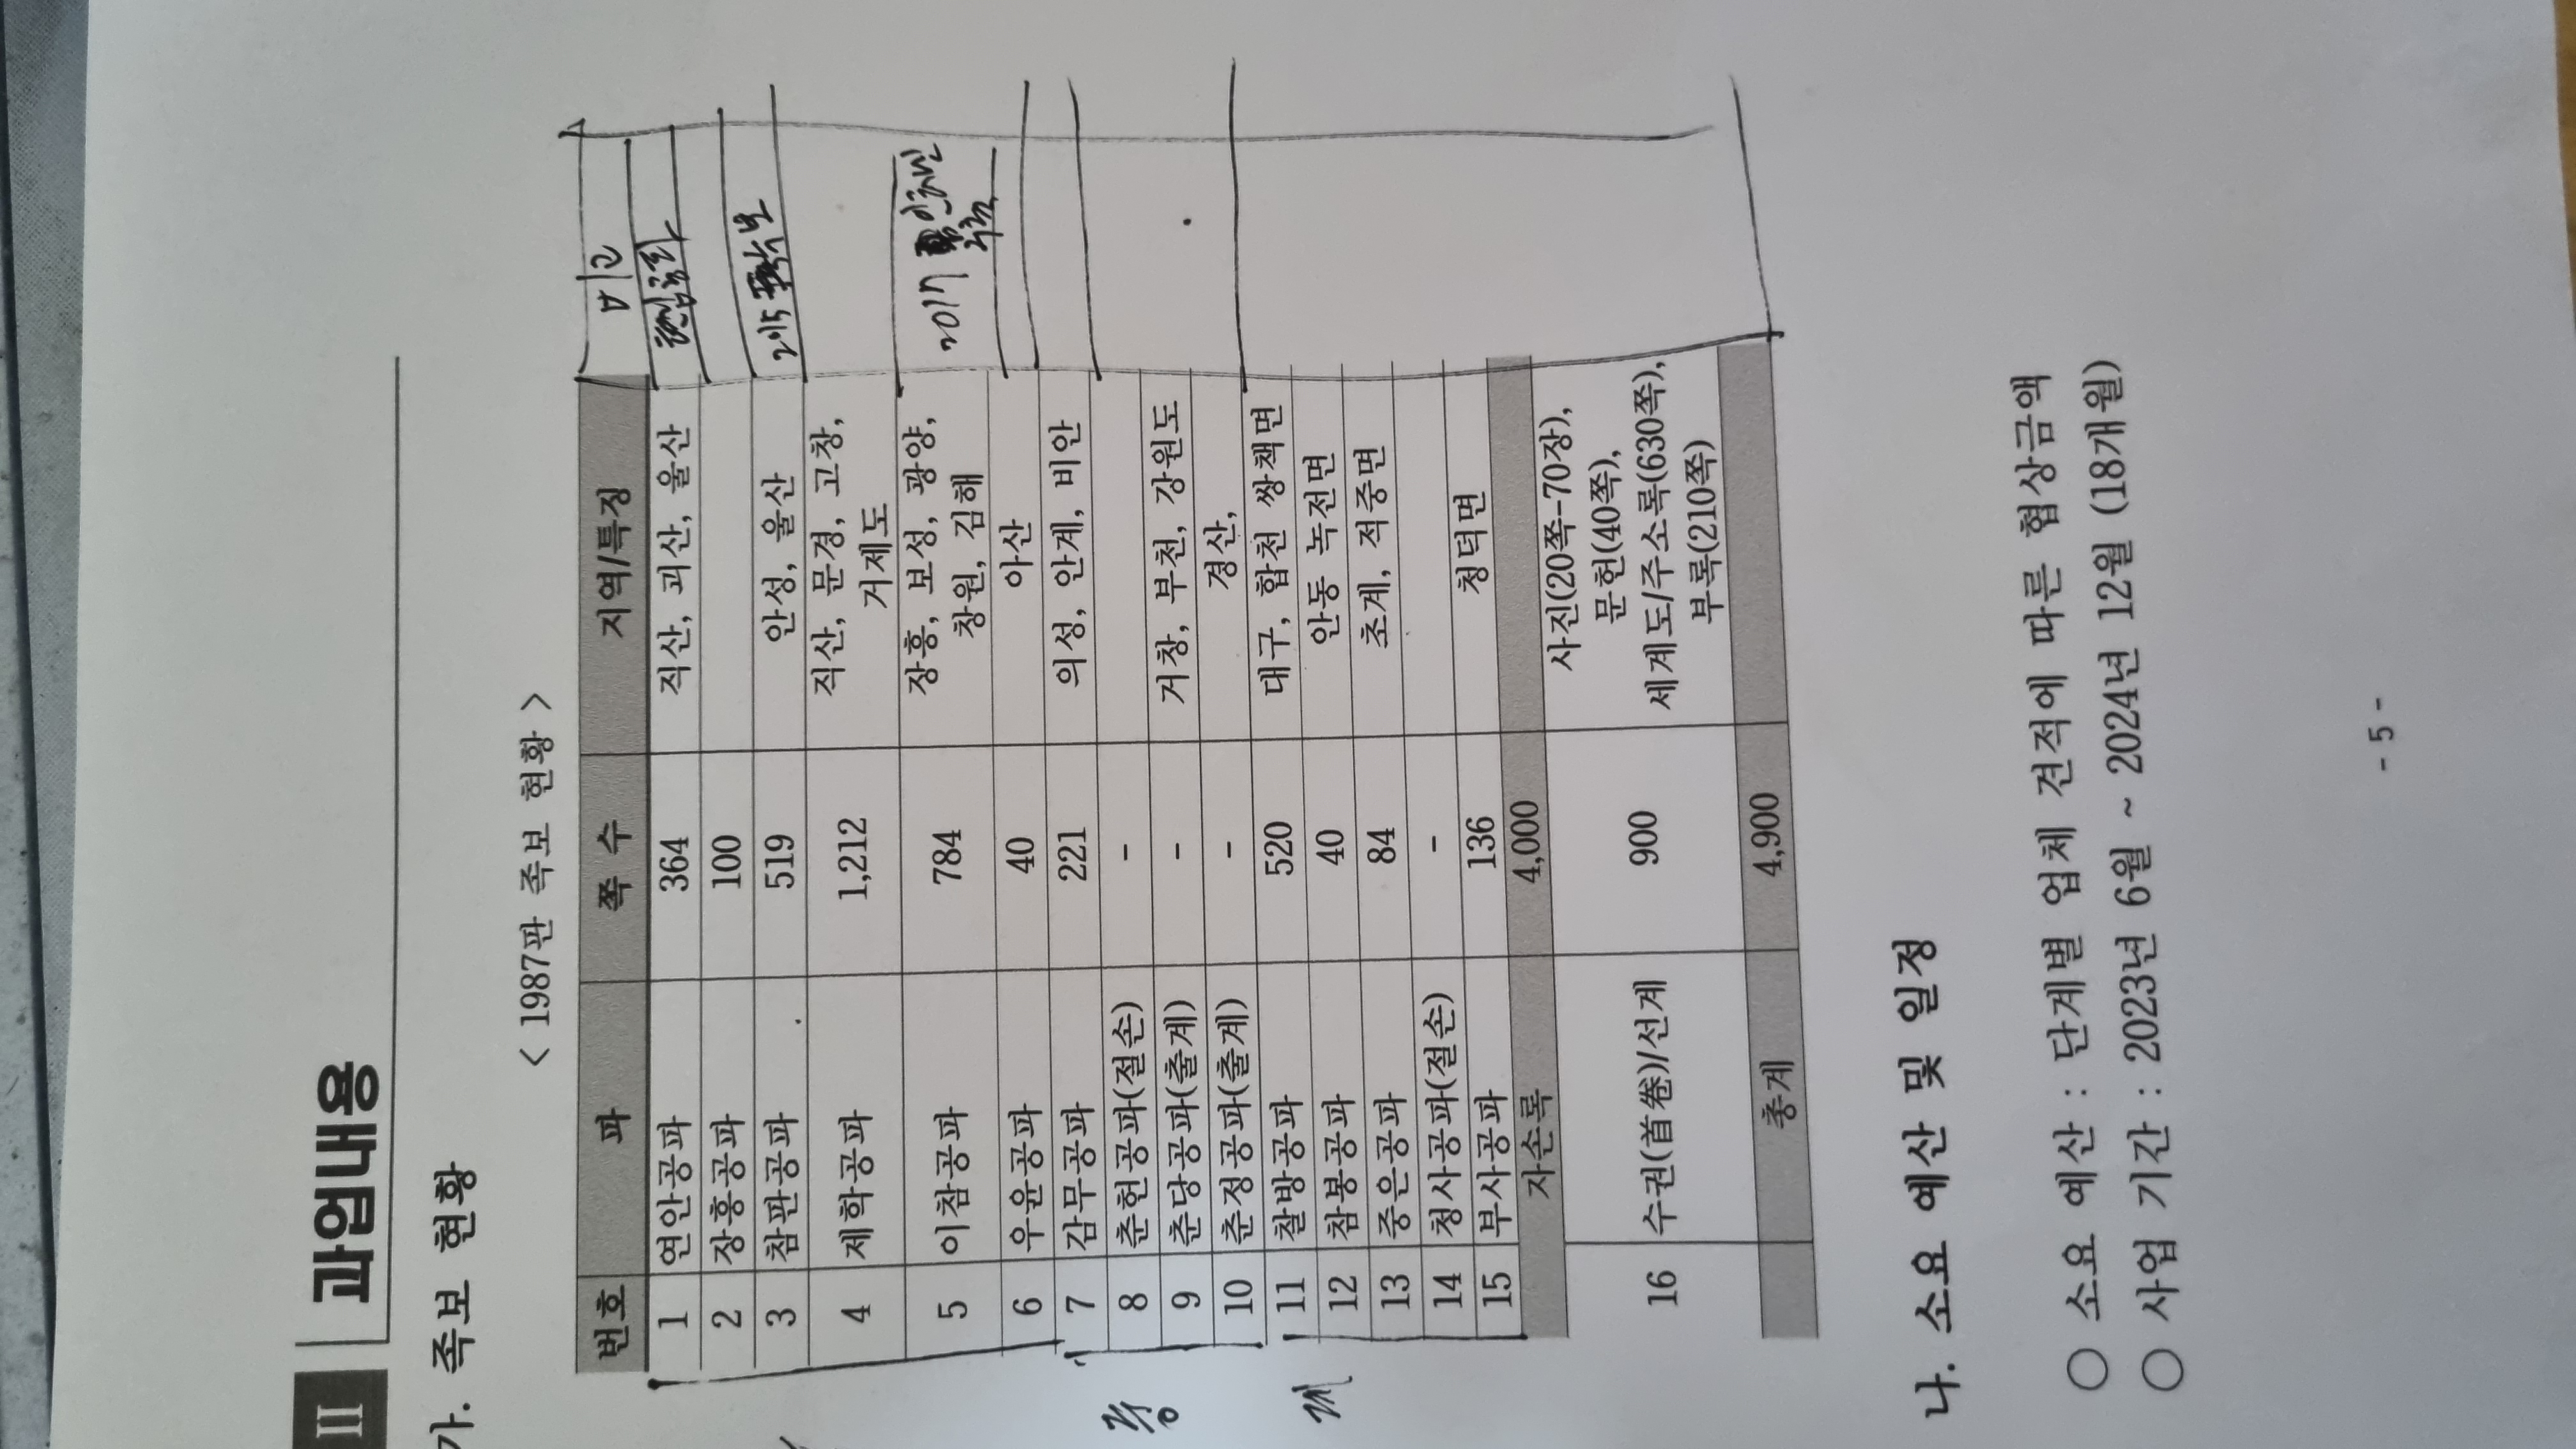 II 과업내용
가. 족보 현황
< 1987판 족보 현황 >
번호 파 쪽 수 지역/특징 비고
1 연안공파 364 직산, 괴산, 울산
2 장흥공파 100
3 참판공파 519 안성, 울산
4 제학공파 1,212 직산, 문경, 고창,
거제도
5 이참공파 784 장흥, 보성, 광양,
창원, 김해
2017
6 우윤공파 40 아산
7 감무공파 221 의성, 안계, 비안
8 춘헌공파(절손) -
9 춘당공파(출계) - 거창, 부천, 강원도
10 춘정공파(출계) - 경산,
11 찰방공파 520 대구, 합천 쌍책면
12 참봉공파 40 안동 녹전면
13 중은공파 84 초계, 적중면
14 청사공파(절손) -
15 부사공파 136 청덕면
자손록 4,000
16 수권(首卷)/선계 900 사진(20쪽-70장),
문헌(40쪽),
세계도/주소록(630쪽),
부록(210쪽)
총계 4,900
중
계
나. 소요 예산 및 일정
○ 소요 예산 : 단계별 업체 견적에 따른 협상금액
○ 사업 기간 : 2023년 6월 ~ 2024년 12월 (18개월)
- 5 -